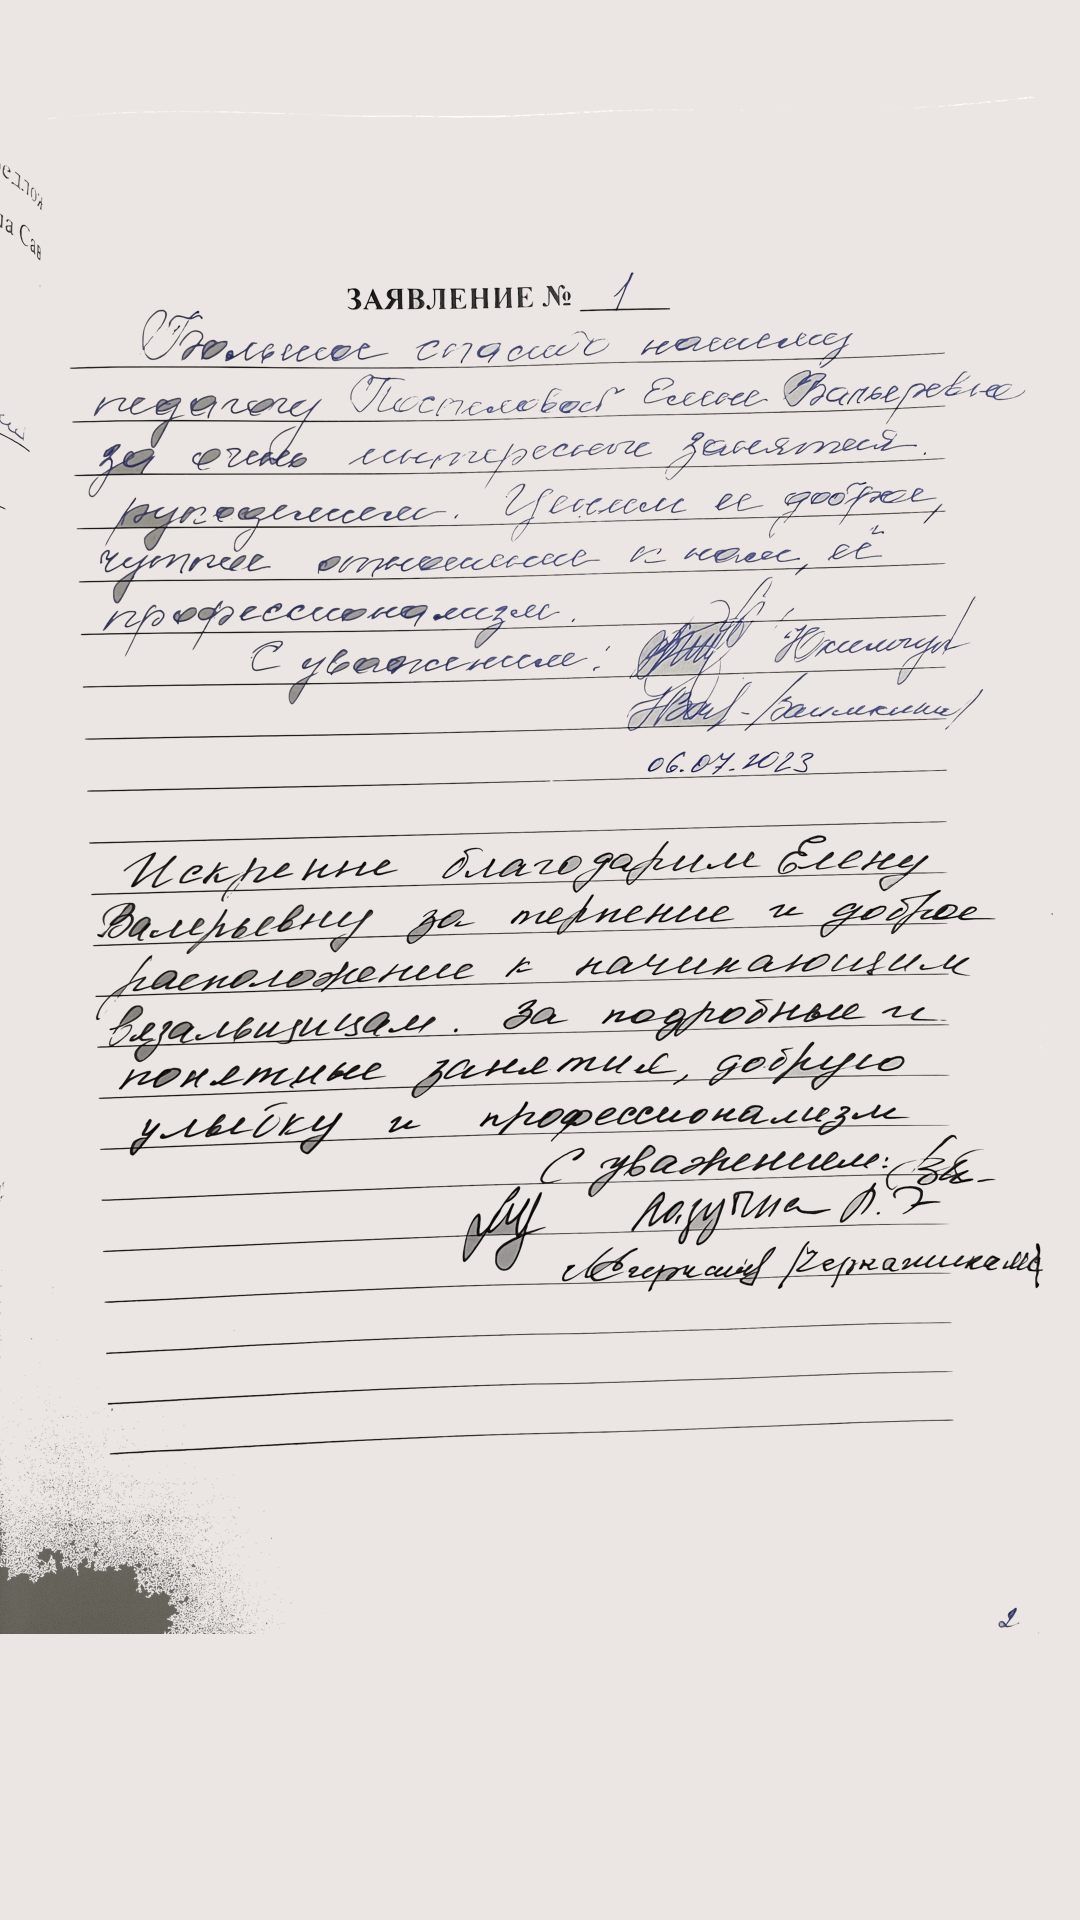 едлож
на Сав
ЗАЯВЛЕНИЕ № 1
Большое спасибо нашему
педагогу Постиловой Елене Валерьевне
за очень интересные занятия
рукоделием. Ценим ее доброе,
чуткое отношение к нам, её
профессионализм.
С уважением:
06.07.2023
Искренне благодарим Елену
Валерьевну за терпение и доброе
расположение к начинающим
вязальщицам. За подробные и
понятные занятия, добрую
улыбку и профессионализм
С уважением:
2